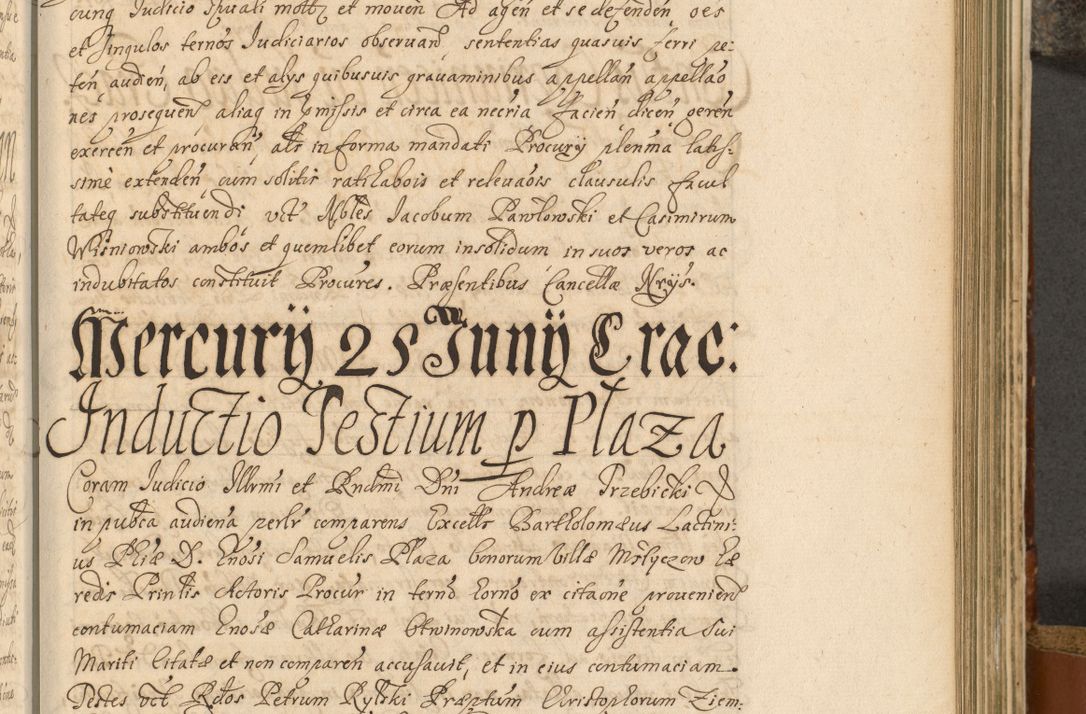 cunq Judicio Spuali mottz et moven Ad agen et se defenden oes
et singulos ternos Judiciarios observand sententias quasuis ferri pe:
ten audien, ab eis et alys quibusvis gravaminibus appellan appellao
nes prosequen aliaq in pmissis et circa ea necria facien dicen geren
exercen et procuran, als in forma mandati Procury plenma latis:
sime extenden cum solitis ratihabois et relevaois clausulis facul
tateq substituendi vct Nobles Jacobum Pawlowski et Casimirum
Wisniowski ambos et quemlibet eorum insolidum in suos veros ac
indubitatos constituit Procures. Præsentibus Cancellæ Nrys.
Mercurij 25 Junij Crac:
Inductio Testium p Plaza
Coram Iudicio Illrmi et Rndmi Dni Andreæ Trzebicki
in pubca audiena perlr comparens Excells Bartholomæus Lactini:
us Phiæ D. Gnosi Samuelis Plaza bonorum Villæ Msłyczow Hæ
redis Prinlis Actoris Procur in termo horno ex citaone provenien
contumaciam Gnosæ Catharinæ Otwinowska cum assistentia sui
Mariti Citatæ et non comparen accusavit, et in eius contumaciam
Testes vct Rdos Petrum Rylski Præptum Christophorum Ziem: